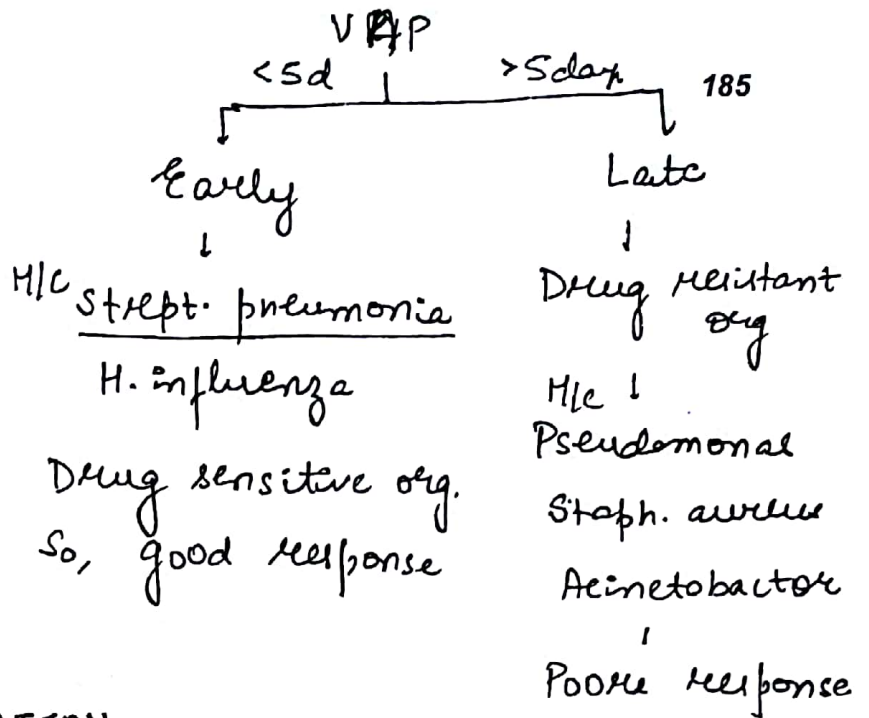 VAP
<5d >5days
185
Early
Late
M/C Strept. pneumonia
H. influenza
Drug sensitive org.
So, good response
Drug resistant
org
M/C
Pseudomonas
Staph. aureus
Acinetobactor
Poor response